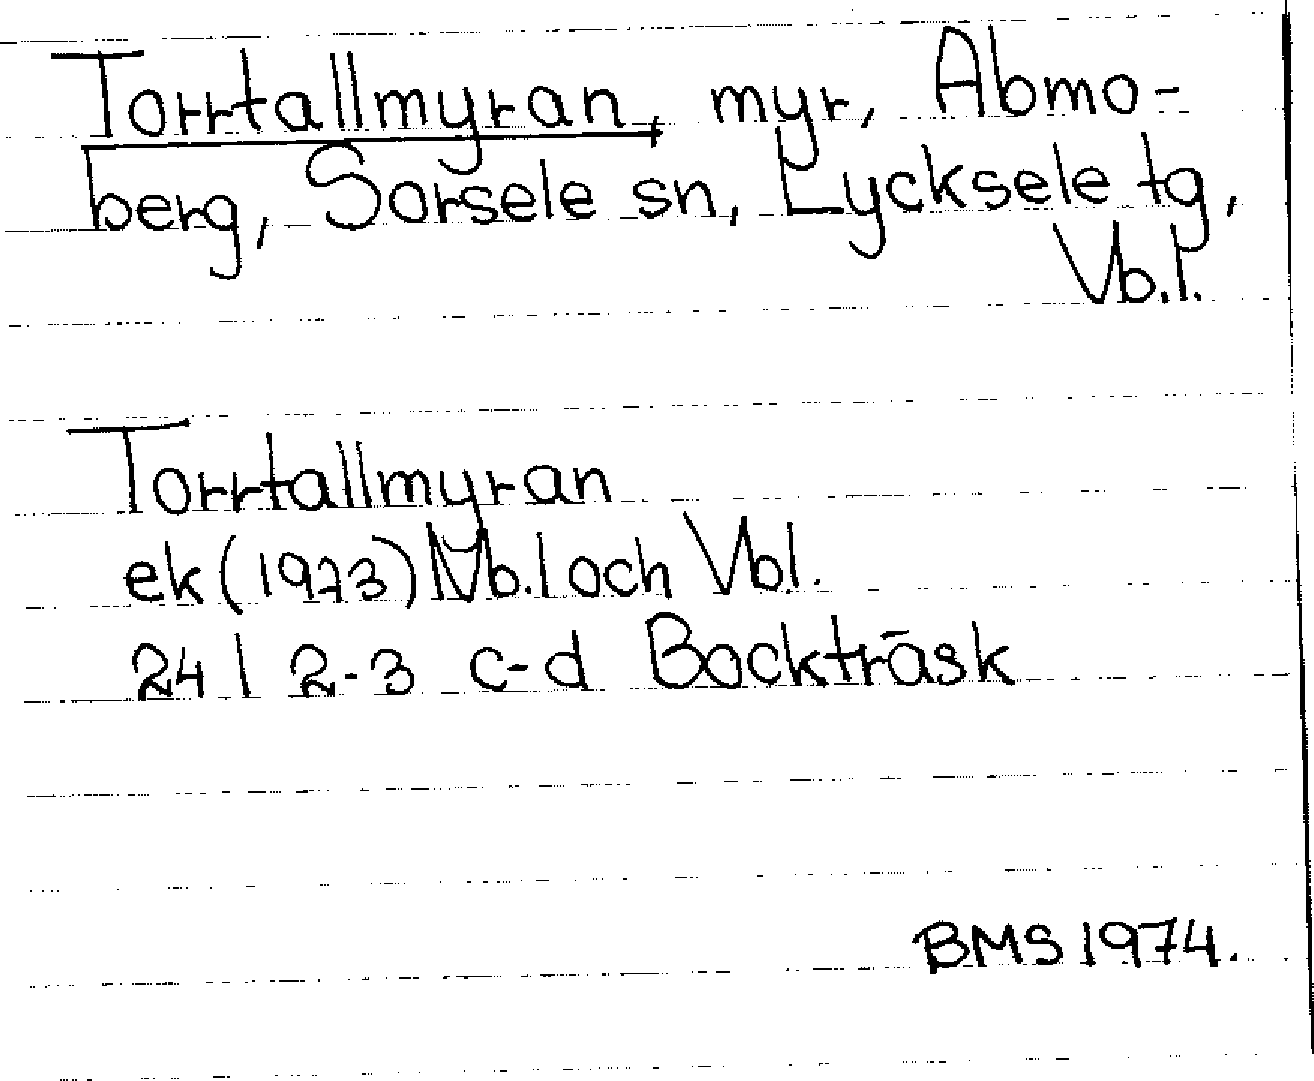 Torrtallmyran, myr, Abmo-
berg, Sorsele sn, Lycksele tg,
Vb.l.
Torrtallmyran
ek (1973) Nb.l och Vbl.
24 I 2-3 c-d Bockträsk
BMS 1974.